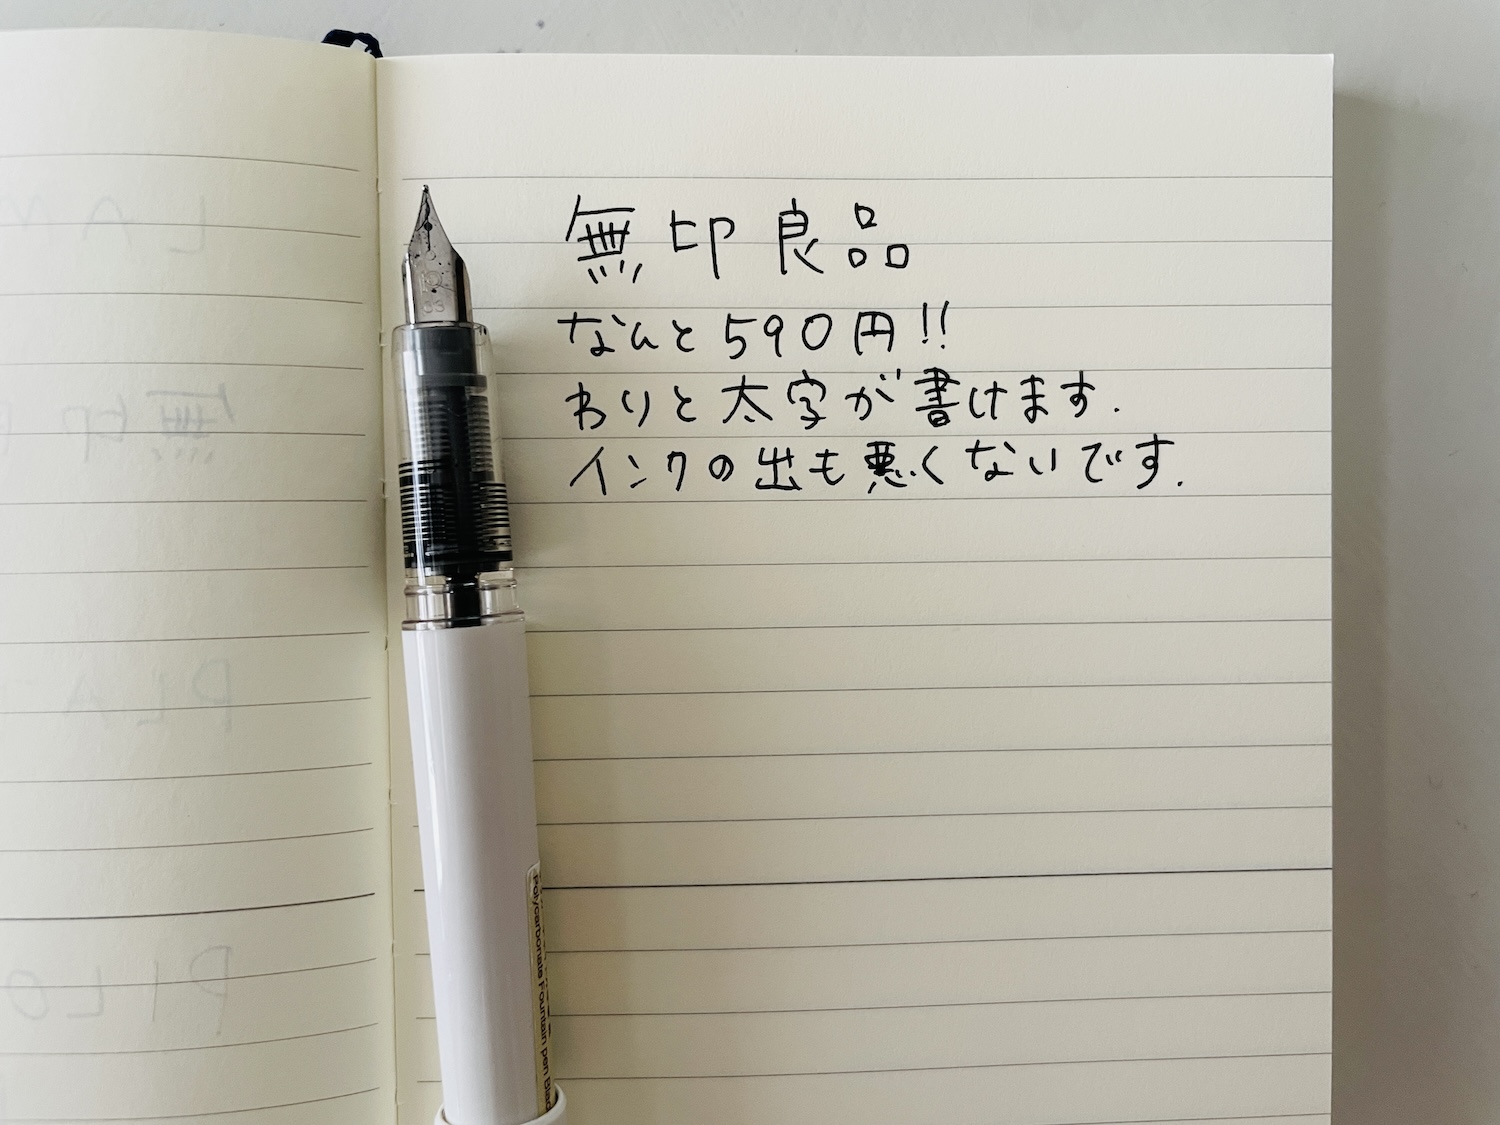 無印良品
なんと590円!!
わりと太字が書けます.
インクの出も悪くないです.
Polycarbonate Fountain pen